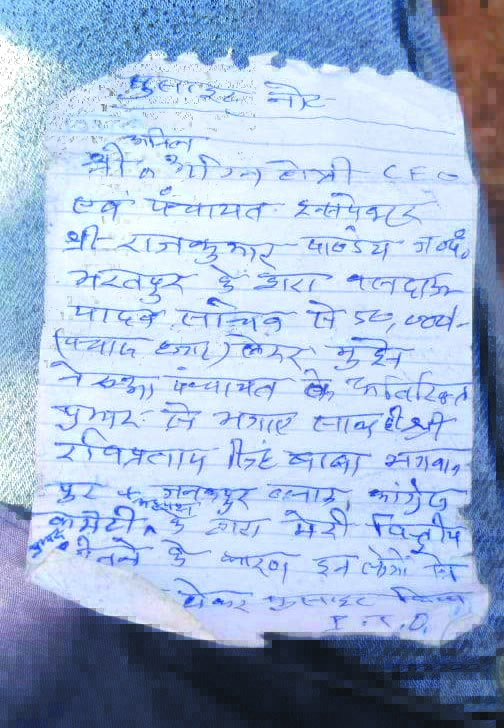 सुसाइड नोट
अनिल
श्री अग्नि होत्री CEO
एवं पंचायत इन्सपेक्टर
श्री राजकुमार पाण्डेय ज०पं०
भरतपुर के द्वारा बलदाऊ
यादव सचिव से 50,000/-
(पचास हजार) लेकर मुझे
नेरुआ पंचायत के अतिरिक्त
प्रभार से भगाए साथ ही श्री
रविप्रताप सिंह बाबा भगवान
पुर जनकपुर ब्लाक कांग्रेस
कमेटी के द्वारा मेरी वित्तीय
के कारण इन लोगों से
होकर सुसाइड किया